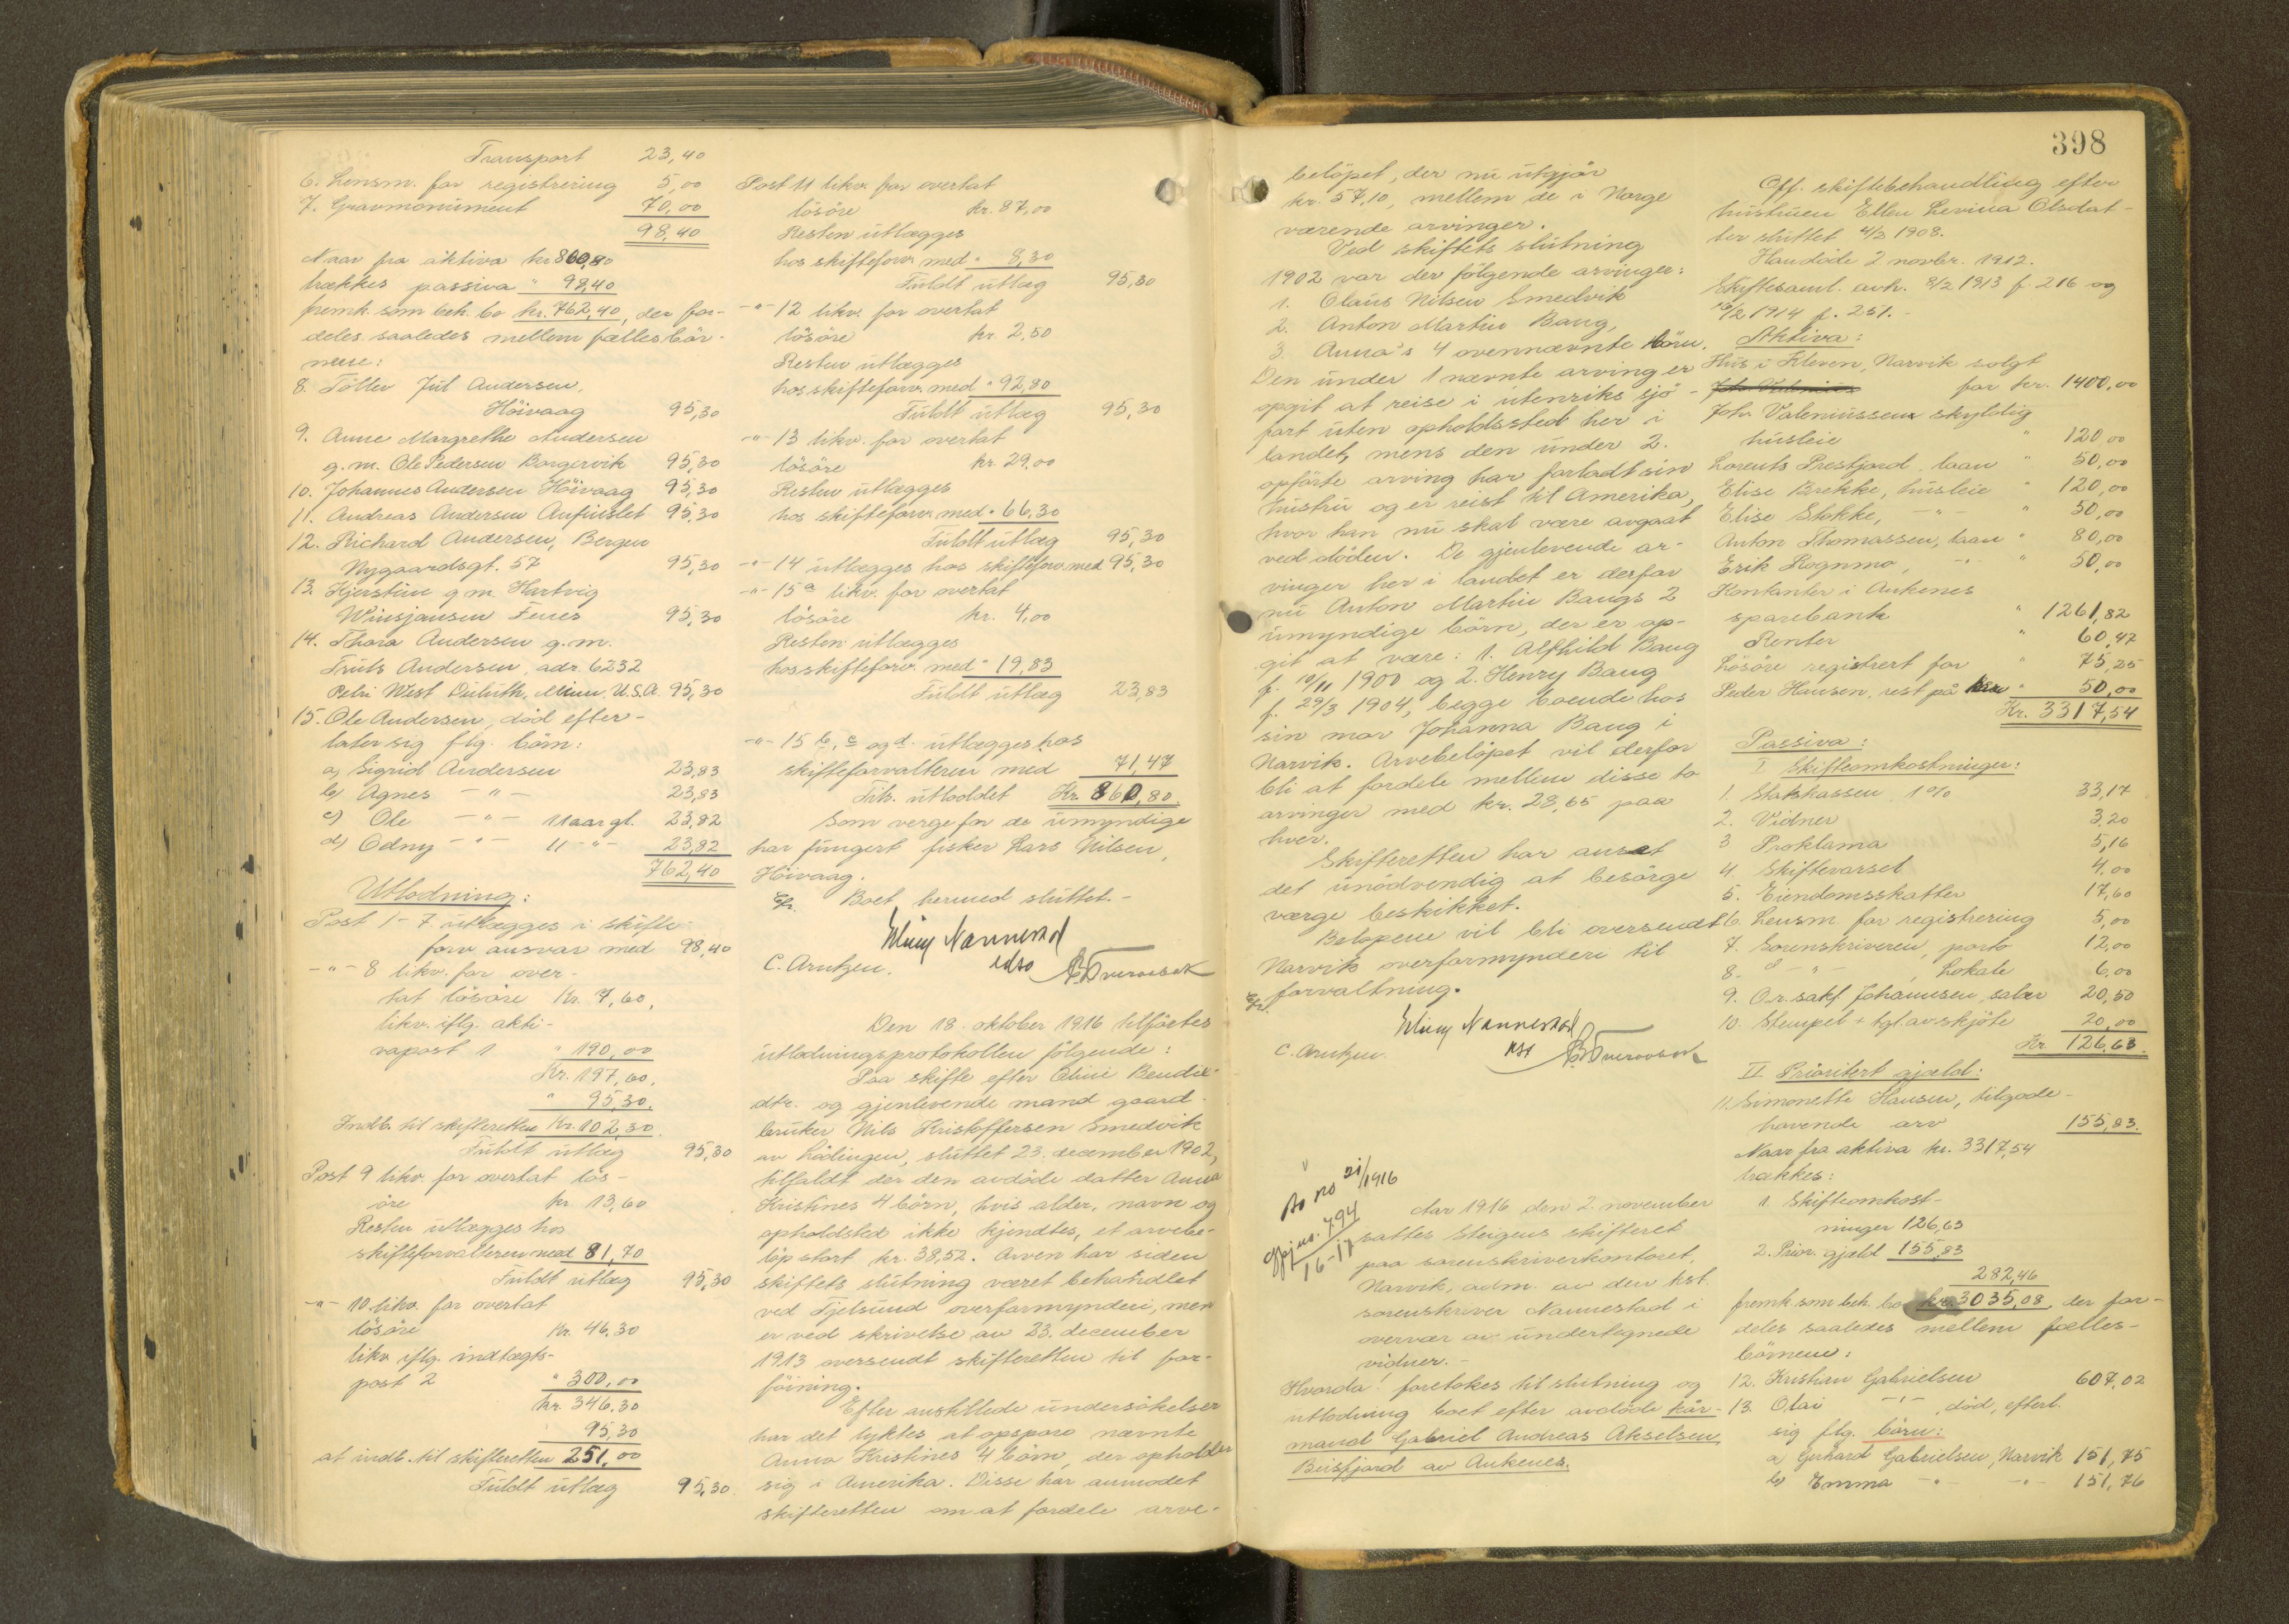 Transport 23,40
6. Lensm. for registrering 5,00
7. Gravmonument 70,00
98,40
Naar fra aktiva kr 860,80
trækkes passiva " 98,40
fremk. som beh. bo kr. 762,40, der for-
deles saaledes mellem fællesbör-
nene:
8. Töller Jul Andersen,
Höivaag 95,30
9. Anne Margrethe Andersen
g.m. Ole Pedersen Borgervik 95,30
10. Johannes Andersen Höivaag 95,30
11. Andreas Andersen Anfinslet 95,30
12. Richard Andersen, Bergen
Nygaardsgt. 57 95,30
13. Kjerstine g.m. Hartvig
Winsjansen Fenes 95,30
14. Thora Andersen g.m.
Truls Andersen, adr. 6232
Petri West Duluth, Minn, U.S.A. 95,30
15. Ole Andersen, död efter-
later sig flg. börn:
a) Sigrid Andersen 23,83
b) Agnes -"- 23,83
c) Ole -"- 11 aar gl. 23,82
d) Odny -"- 11 -"- 23,82
762,40
Utlodning:
Post 1-7 utlægges i skifte-
forv. ansvar med 98,40
-"- 8 likv. for over-
tat lösöre kr. 7,60,
likv. iflg. akti-
vapost 1 " 190,00
Kr. 197,60,
" 95,30.
Indb. til skifteretten Kr. 102,30
Fuldt utlæg 95,30
Post 9 likv. for overtat lös-
öre kr 13,60
Resten utlægges hos
skifteforvalteren med 81,70
Fuldt utlæg 95,30
-"- 10. likv. for overtat
lösöre kr. 46,30
likv. iflg. indtægts-
post 2 " 300,00
kr. 346,30
95,30
at indb. til skifteretten 251,00
Fuldt utlæg 95,30.
Post 11 likv. for overtat
lösöre kr. 87,00
Resten utlægges
hos skifteforv. med " 8,30
Fuldt utlæg 95,30
-"- 12 likv. for overtat
lösöre kr. 2,50
Resten utlægges
hos skifteforv. med " 92,80
Fuldt utlæg 95,30
-"- 13 likv. for overtat
lösöre kr. 29,00
Resten utlægges
hos skifteforv. med " 66,30
Fuldt utlæg 95,30
-"- 14 utlægges hos skifteforv. med 95,30
-"- 15 a likv. for overtat
lösöre kr. 4,00
Resten utlægges
hos skifteforv. med " 19,83
Fuldt utlæg 23,83
-"- 15 b, c og d. utlægges hos
skifteforvalteren med 71,47
Tils. utloddet Kr. 860,80.
Som verge for de umyndige
har fungert fisker Lars Nilsen,
Höivaag.
Boet hermed sluttet.-
Nannestad
C. Arntzen.
Den 18. oktober 1916 tilförtes
utlodningsprotokollen följende:
Paa skifte efter Eline Bendix-
dtr. og gjenlevende mand gaard-
bruker Nils Kristoffersen Smedvik
av Lödingen, sluttet 23. december 1902,
tilfaldt der den avdöde datter Anna
Kristines 4 börn, hvis alder, navn og
opholdsted ikke kjendtes, et arvebe-
löp stort kr. 38,52. Arven har siden
skiftets slutning været behandlet
ved Tjelsund overformynderi, men
er ved skrivelse av 23. december
1913 oversendt skifteretten til for-
föining.
Efter anstillede undersökelser
har det lyktes at opspore nævnte
Anna Kristines 4 börn, der opholder
sig i Amerika. Disse har anmodet
skifteretten om at fordele arve-
398
belöpet, der nu utgjör
kr. 57,10, mellem de i Norge
værende arvinger.
Ved skiftets slutning
1902 var der följende arvinger:
1. Olaus Nilsen Smedvik
2. Anton Martin Baug,
3. Anna's 4 ovennævnte börn.
Den under 1 nævnte arving er
opgit at reise i utenriks sjö-
fart uten opholdssted her i
landet, mens den under 2.
opförte arving har forladt sin
hustru og er reist til Amerika,
hvor han nu skal være avgaat
ved döden. De gjenlevende ar-
vinger her i landet er derfor
nu Anton Martin Baugs 2
umyndige börn, der er op-
git at være: 1. Alfhild Baug
f. 10/11 1900 og 2. Henry Baug
f. 29/3 1904, begge boende hos
sin mor Johanna Baug i
Narvik. Arvebelöpet vil derfor
bli at fordele mellem disse to
arvinger med kr. 28,55 paa
hver.
Skifteretten har anset
det unödvendig at besörge
værge beskikket.
Belöpene vil bli oversendt
Narvik overformynderi til
forvaltning.
Nannestad
C. Arntzen.
Bo no 21/1916
Gjpj no. 794
16-17
Aar 1916 den 2. november
sattes Steigens skifteret
paa sorenskriverkontoret,
Narvik, adm. av den kst.
sorenskriver Nannestad i
overvær av undertegnede
vidner.-
Hvorda! foretokes til slutning og
utlodning boet efter avdöde kår-
mand Gabriel Andreas Akselsen,
Beisfjord av Ankenes.
Off. skiftebehandling efter
hustruen Ellen Levina Olsdat-
ter sluttet 4/2 1908.
Han döde 2 novbr. 1912.
Skiftesaml. avh. 8/2 1913 f. 216 og
10/2 1914 f. 251.-
Aktiva:
Hus i Kleven, Narvik solgt
for kr. 1400,00
Joh. Valeniussen skyldig
husleie " 120,00
Lorents Prestjord, laan " 50,00
Elise Brekke, husleie " 120,00
Elise Stokke, -"- " 50,00
Anton Thomassen, laan " 80,00
Erik Rognmo, -"- " 50,00
Kontanter i Ankenes
sparebank " 1261,82
Renter " 60,47
Lösöre registrert for " 75,25
Peder Hansen, rest på " 50,00
Kr. 3317,54
Passiva:
I Skifteomkostninger:
1. Statskassen 1% 33,17
2. Vidner 3,20
3 Proklama 5,16
4. Skiftevarsel 4,00
5. Eiendomsskatter 17,60
6. Lensm. for registrering 5,00
7. Sorenskriveren, porto 12,00
8. -"- , Lokale 6,00
9. O.r.sakf. Johannsen, salær 20,50
10. Stempel + tgl. av skjöte 20,00
Kr. 126,63.
II Prioritert gjæld:
11. Simonette Hansen, tilgode-
havende arv 155,83.
Naar fra aktiva kr. 3317,54
trækkes:
1. Skifteomkost-
ninger 126,63
2. Prior. gjæld 155,83
282,46
fremk som beh. bo kr. 3035,08, der for-
deles saaledes mellem fælles-
börnene:
12. Kristian Gabrielsen 607,02
13. Olai -"- , död, efterl.
sig flg. börn:
a) Gerhard Gabrielsen, Narvik 151,75
b) Emma -"- -"- 151,76